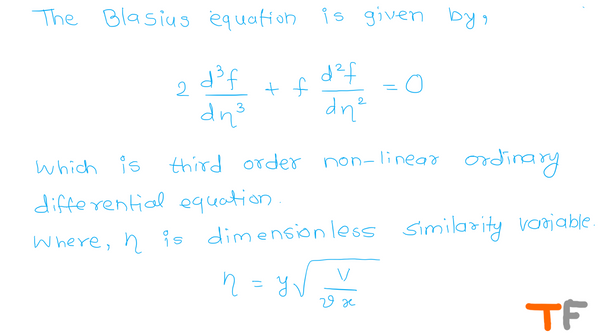 The Blasius equation is given by,
2 d³f/dη³ + f d²f/dη² = 0
Which is third order non-linear ordinary
differential equation.
Where, η is dimensionless similarity variable.
η = y√(V/ϑx)
TF